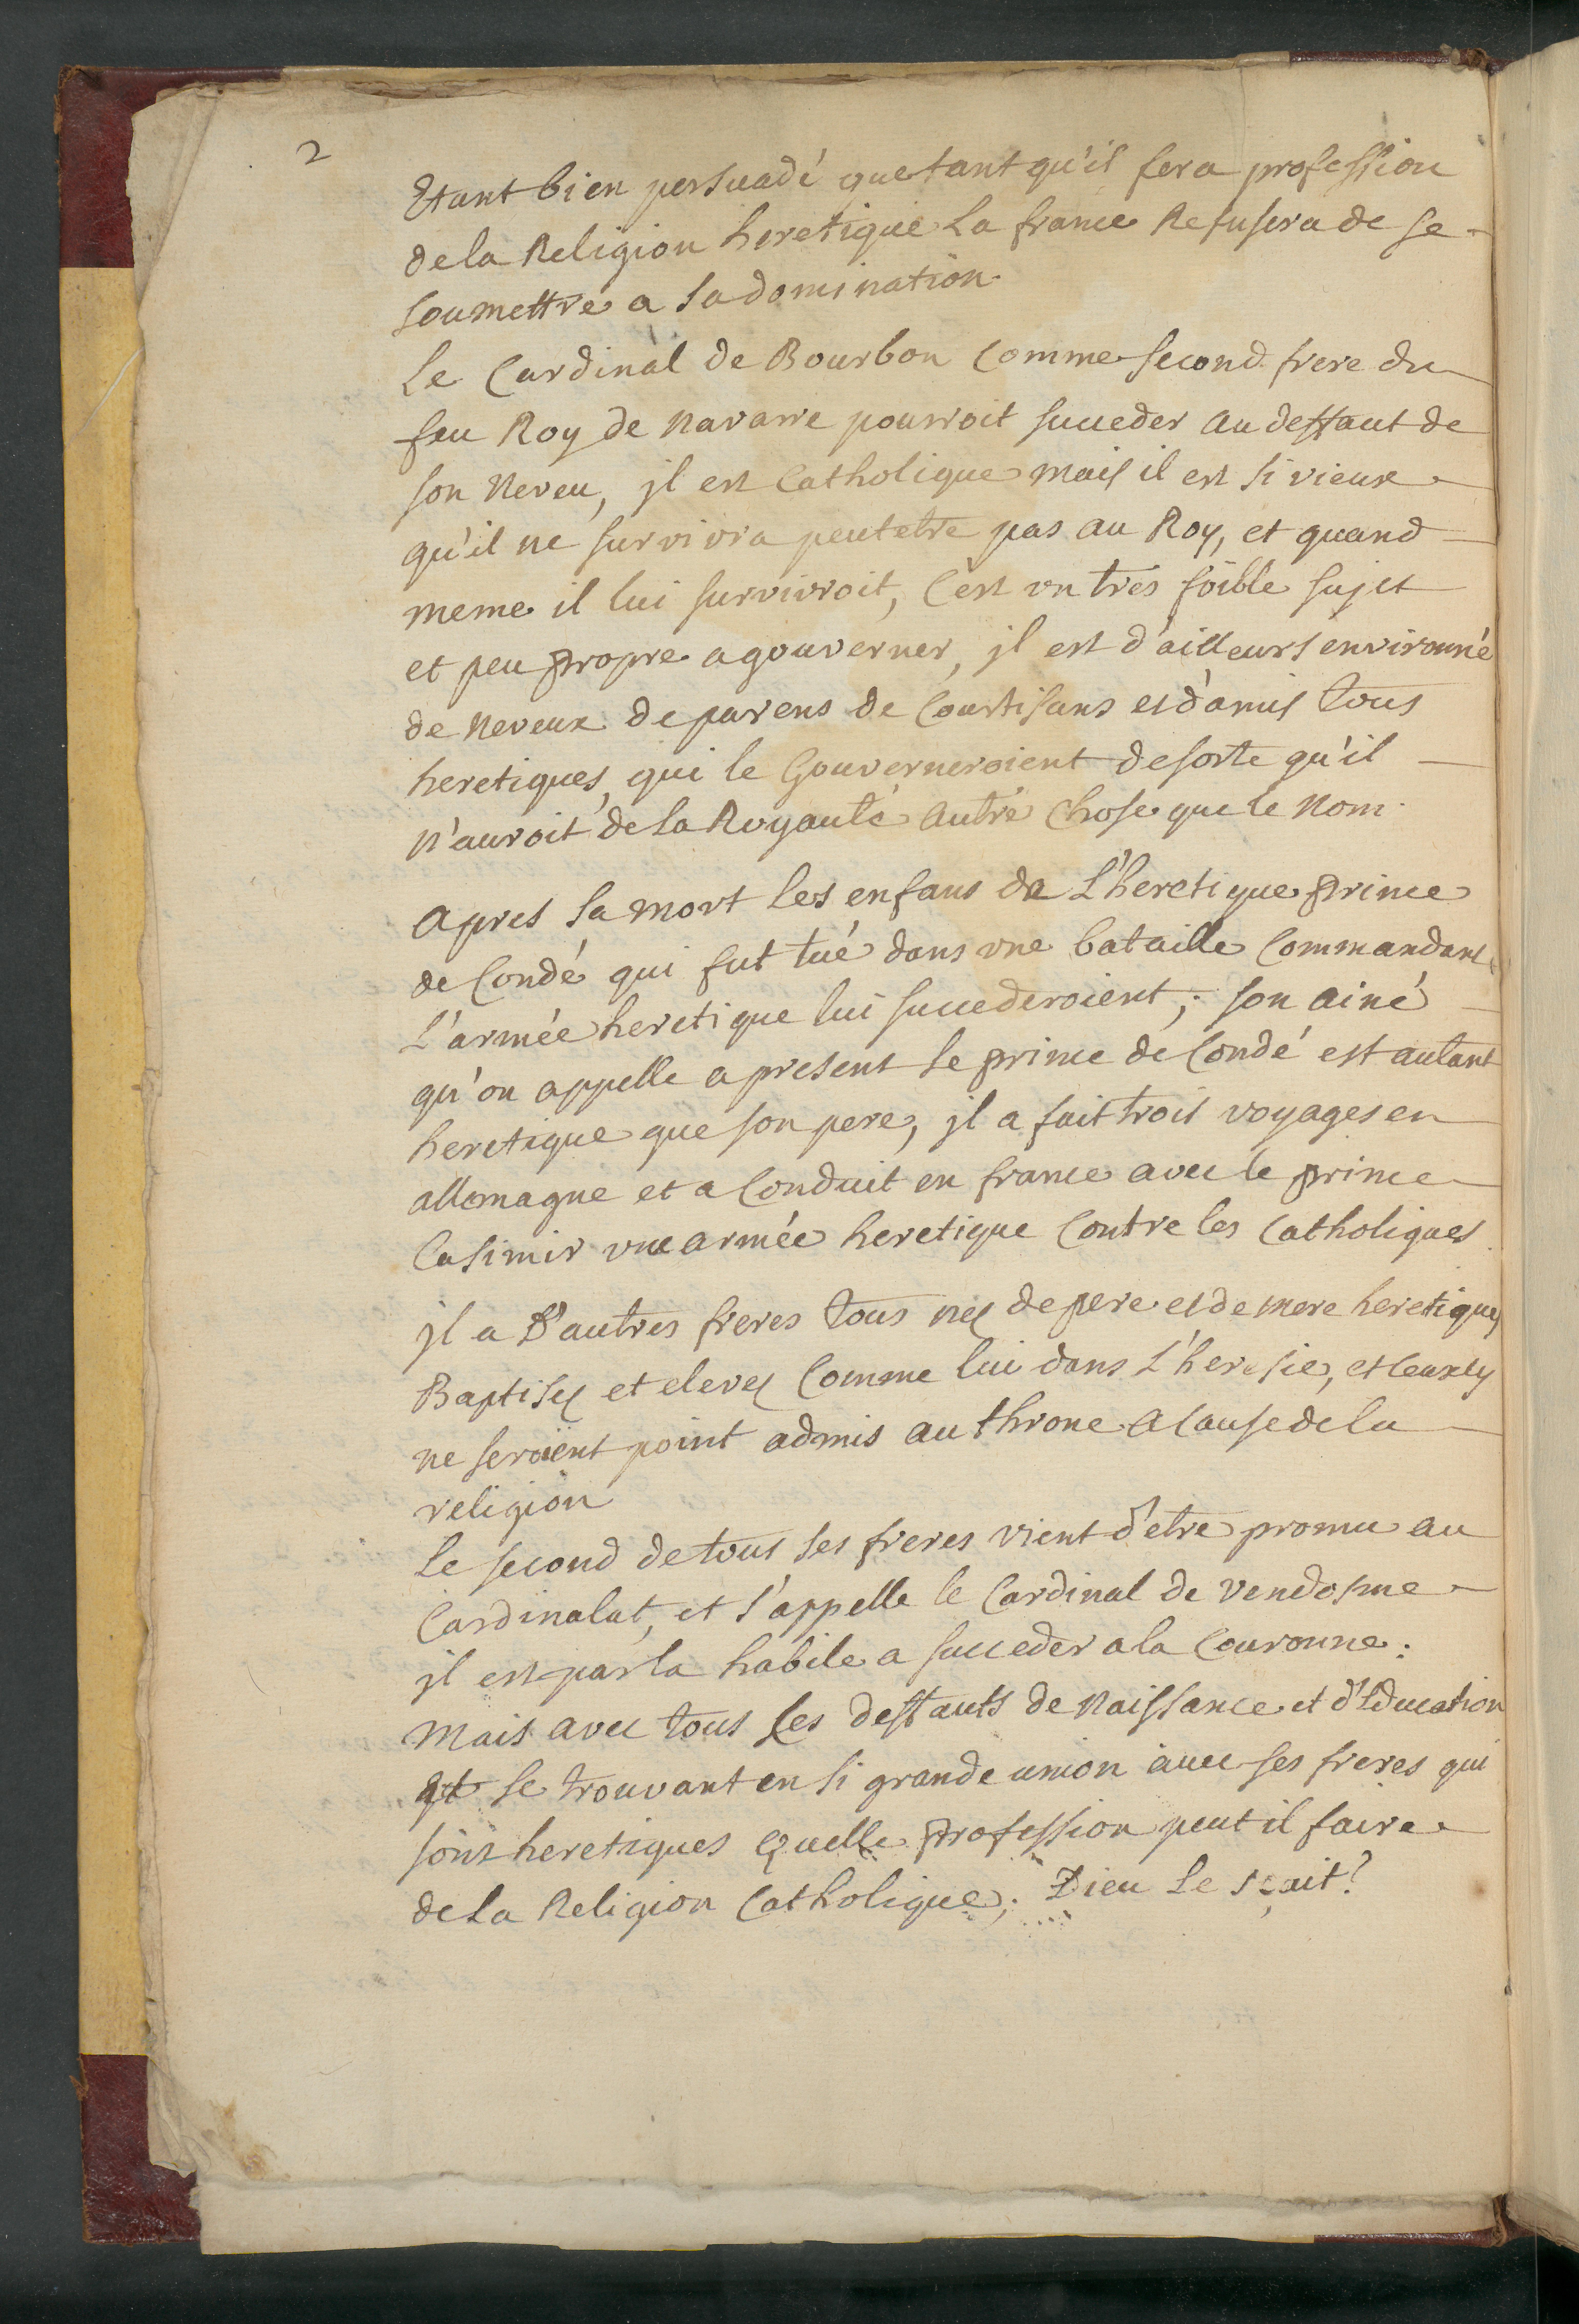 2
Etant bien persuadé que tant qu'il fera profession
de la Religion heretique La france Refusera de se
soumettre a sa domination.
Le Cardinal de Bourbon Comme second frere du
feu Roy de Navarre pourroit succeder au deffaut de
son Neveu, jl est Catholique mais il est si vieux
qu'il ne survivra peutetre pas au Roy, et quand
meme il lui survivroit, C'est vn tres foible sujet
et peu propre a gouverner, jl est d'ailleurs environné
de Neveux de parens de Courtisans et d'amis tous
heretiques, qui le Gouverneroient de sorte qu'il
n'auroit de la Royauté autre Chose que le Nom.
apres sa mort les enfans de L'heretique prince
de Condé qui fut tué dans vne bataille Commandant
L'armée heretique lui succederoient; son ainé
qu'on appelle a present le prince de Condé est autant
heretique que son pere, jl a fait trois voyages en
allemagne et a Conduit en france avec le prince
Casimir vne armée heretique Contre les Catholiques
jl a D'autres freres tous nes de pere et de mere heretiques
Baptises et eleves Comme lui dans L'heresie, et
ne seroient point admis au throne a Cause de la
religion
Le second de tous ses freres vient d'etre promu au
Cardinalat, et s'appelle le Cardinal de Vendosme
jl est par la habile a succeder a la Couronne:
Mais avec tous ses deffauts de Naissance et d'Education
et se trouvant en si grande union avec ses freres qui
sont heretiques Quelle profession peut il faire
de La Religion Catholique; Dieu Le sçait?